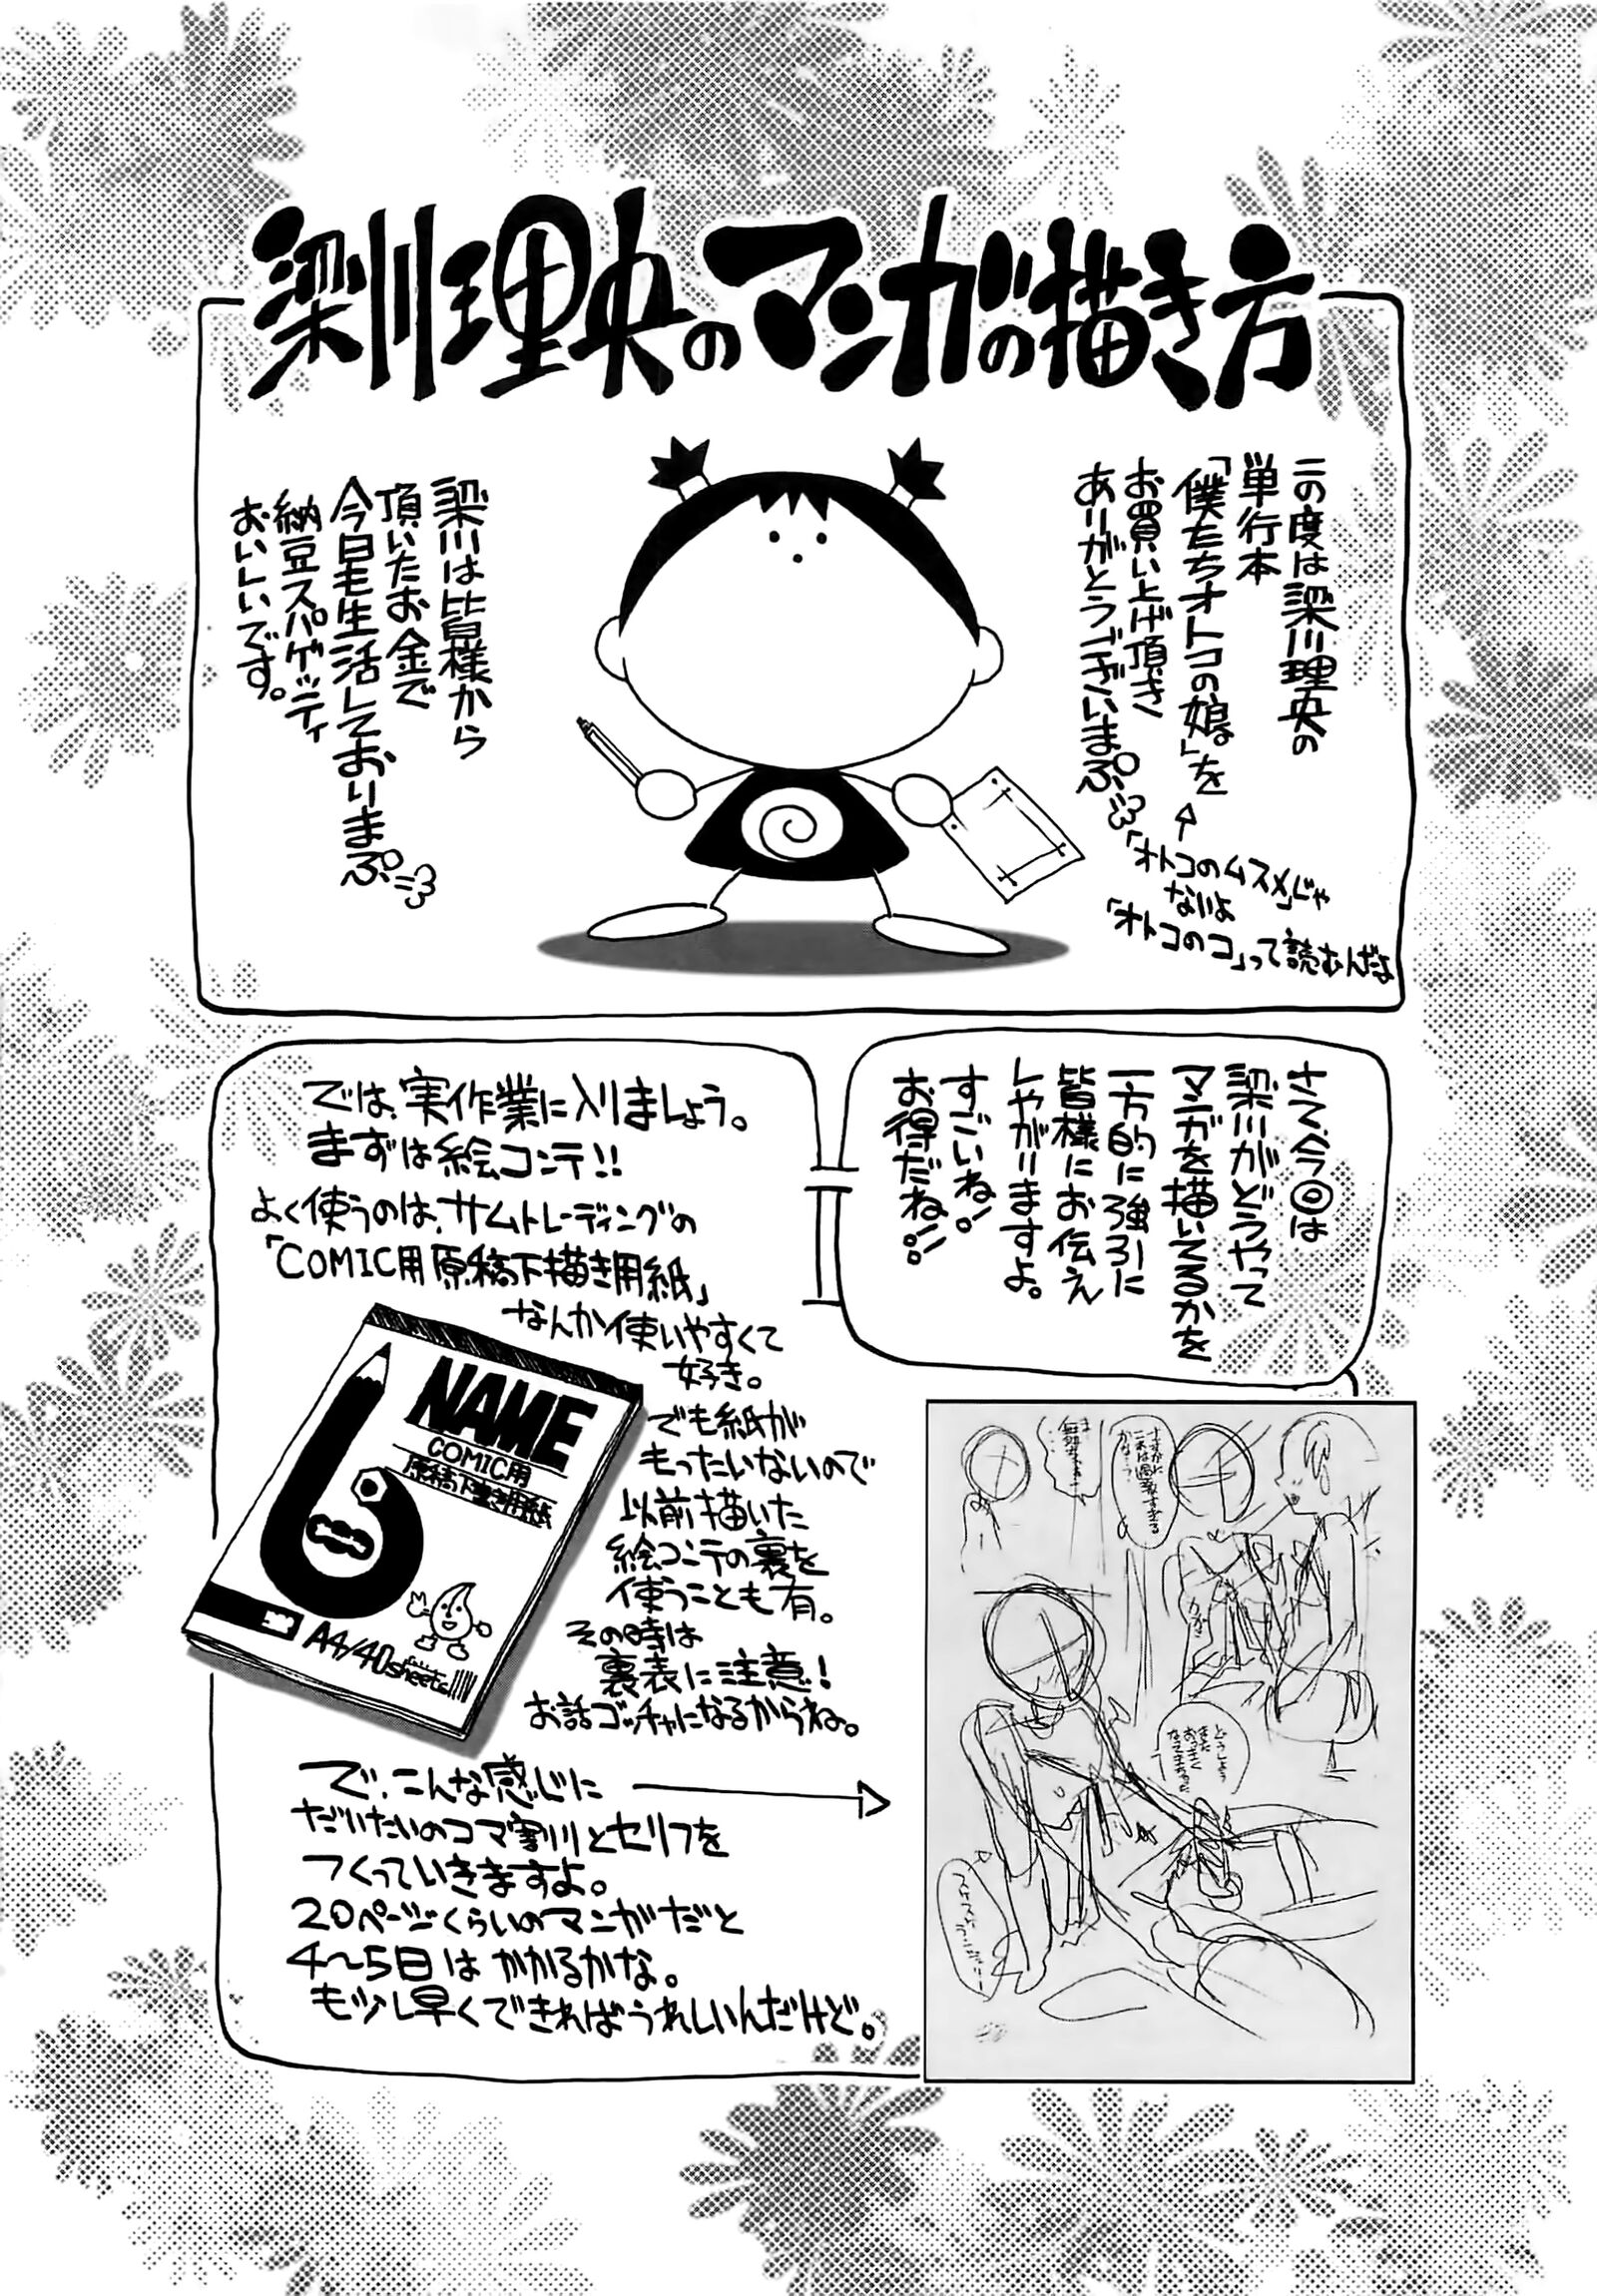 梁川理央のマンガの描き方
この度は梁川理央の
単行本
「僕たちオトコの娘。」を
お買い上げ頂き
ありがとうございまぷ。
「オトコのムスメ」じゃ
ないよ
「オトコのコ」って読むんだよ
梁川は皆様から
頂いたお金で
今日も生活しておりまぷ。
納豆スパゲッティ
おいしいです。
さて、今回は
梁川がどうやって
マンガを描いてるかを
一方的に強引に
皆様にお伝え
しやがりますよ。
すごいね!
お得だね!!
では、実作業に入りましょう。
まずは絵コンテ!!
よく使うのは、サムトレーディングの
「COMIC用原稿下描き用紙」
なんか使いやすくて
好き。
でも紙が
もったいないので
以前描いた
絵コンテの裏を
使うことも有。
その時は
裏表に注意!
お話ゴッチャになるからね。
NAME
COMIC用
原稿下書き用紙
A4/40sheets
で、こんな感じに
だいたいのコマ割りとセリフを
つくっていきますよ。
20ページくらいのマンガだと
4〜5日はかかるかな。
も少し早くできればうれしいんだけど。
さすがに
これは過激すぎる
かな…?
どうしよう